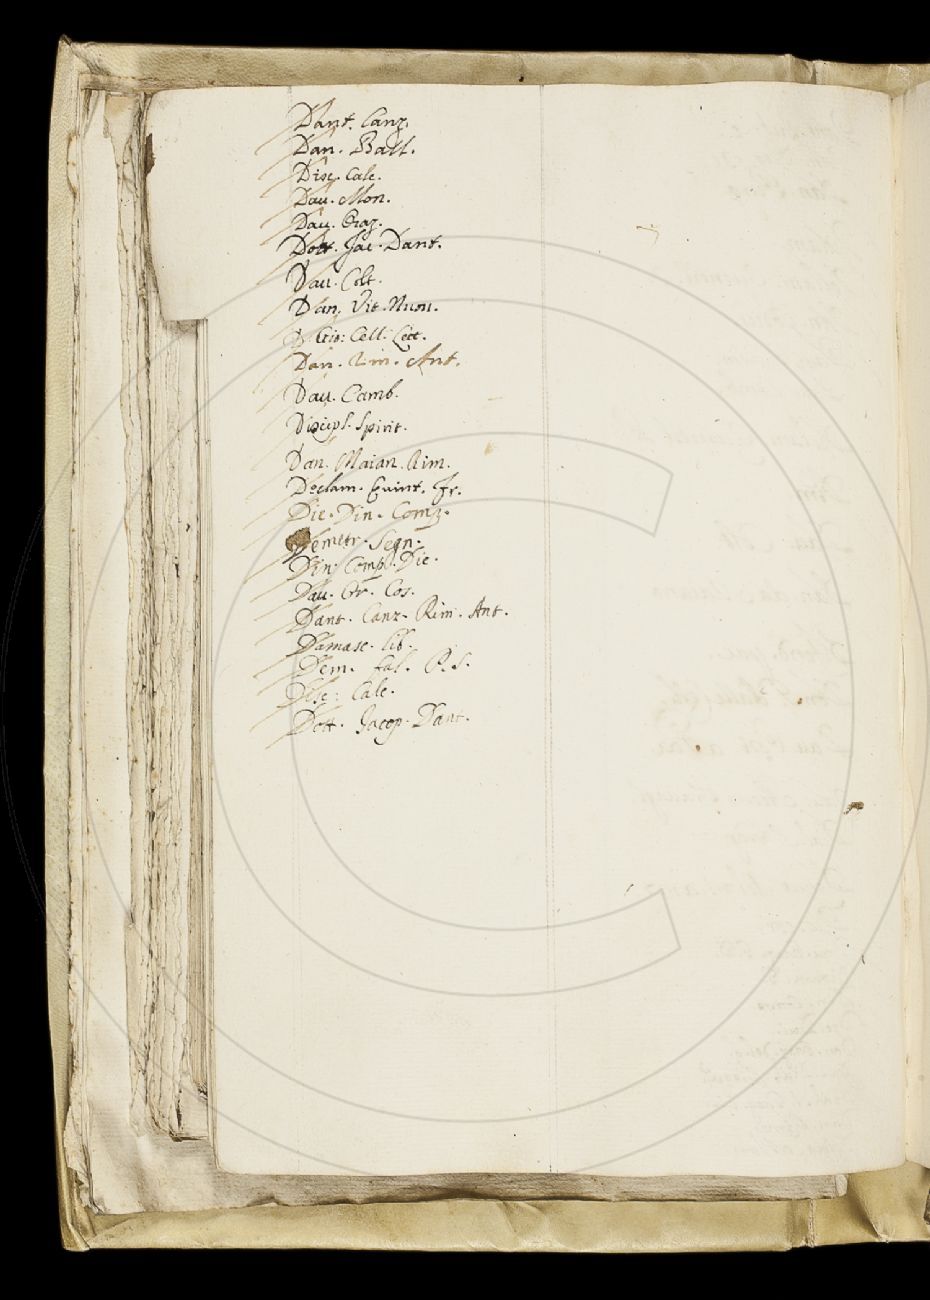 Dant. Canz.
Dan. Batt.
Disc. Calc.
Dau. Mon.
Dau. Oraz.
Dott. Jac. Dant.
Dau. Colt.
Dan. Vit. Nuou.
D. Gio: Cell. Lett.
Dan. Rim. Ant.
Dau. Camb.
Discipl. Spirit.
Dan. Maian. Rim.
Declam. Quint. Fr.
Die. Din. Comp.
Demetr. Segn.
Din. Comp. Die.
Dau. Or. Cos.
Dant. Canz. Rim. Ant.
Damasc. lib.
Dem. fal. P. S.
Disc. Calc.
Dott. Jacop. Dant.